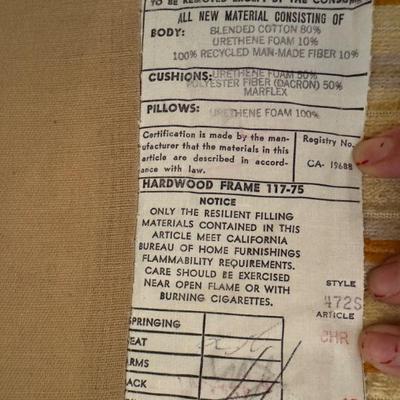 TO BE REMOVED EXCEPT BY THE CONSUMER
ALL NEW MATERIAL CONSISTING OF
BODY: BLENDED COTTON 80%
URETHENE FOAM 10%
100% RECYCLED MAN-MADE FIBER 10%
CUSHIONS: URETHENE FOAM 50%
POLYESTER FIBER (DACRON) 50%
MARFLEX
PILLOWS: URETHENE FOAM 100%
Certification is made by the man-
ufacturer that the materials in this
article are described in accord-
ance with law.
Registry No.
CA- 19688
HARDWOOD FRAME 117-75
NOTICE
ONLY THE RESILIENT FILLING
MATERIALS CONTAINED IN THIS
ARTICLE MEET CALIFORNIA
BUREAU OF HOME FURNISHINGS
FLAMMABILITY REQUIREMENTS.
CARE SHOULD BE EXERCISED
NEAR OPEN FLAME OR WITH
BURNING CIGARETTES.
STYLE
472S
ARTICLE
CHR
SPRINGING
EAT
ARMS
ACK